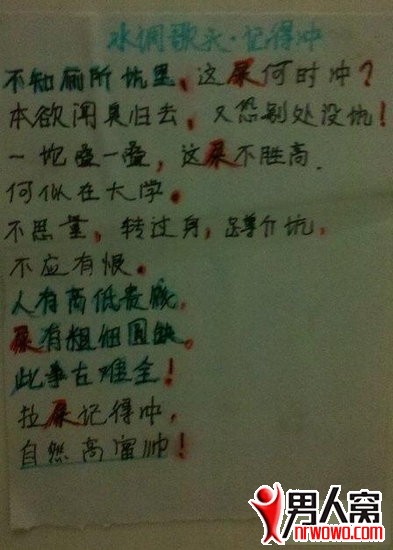 水调歌头·记得冲
不知厕所坑里，这屎何时冲？
本欲闻臭归去，又恐别处没坑！
一坨叠一叠，这屎不胜高．
何似在大学。
不思量，转过身，蹲个坑，
不应有恨。
人有高低贵贱，
屎有粗细圆缺。
此事古难全！
拉屎记得冲，
自然高富帅！
男人窝
nrwowo.com